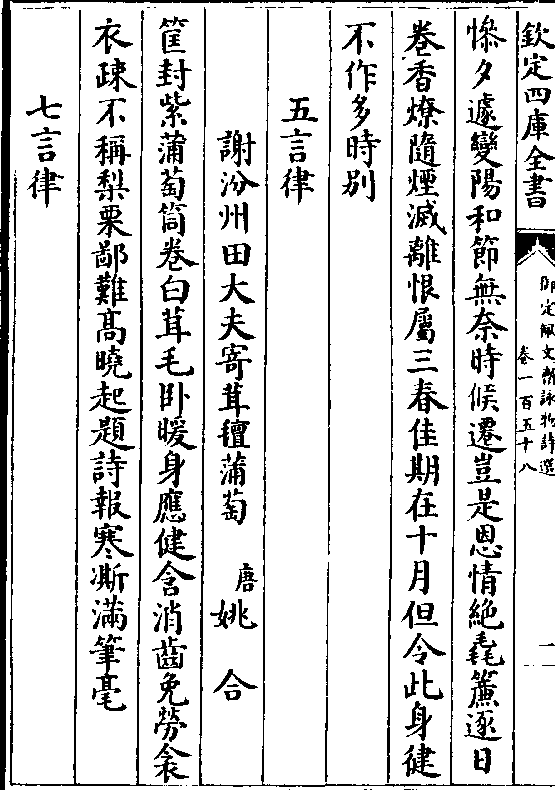 欽定四庫全書
御定佩文齋詠物詩選
卷一百五十八
一
慘夕遽變陽和節無奈時候遷豈是恩情絶毳簾逐日
卷香燎隨煙滅離恨屬三春佳期在十月但令此身健
不作多時别
五言律
謝汾州田大夫寄茸氊蒲萄 唐姚合
筐封紫蒲萄筒卷白茸毛卧暖身應健含消齒免勞衾
衣疎不稱梨栗鄙難髙曉起題詩報寒澌滿筆毫
七言律